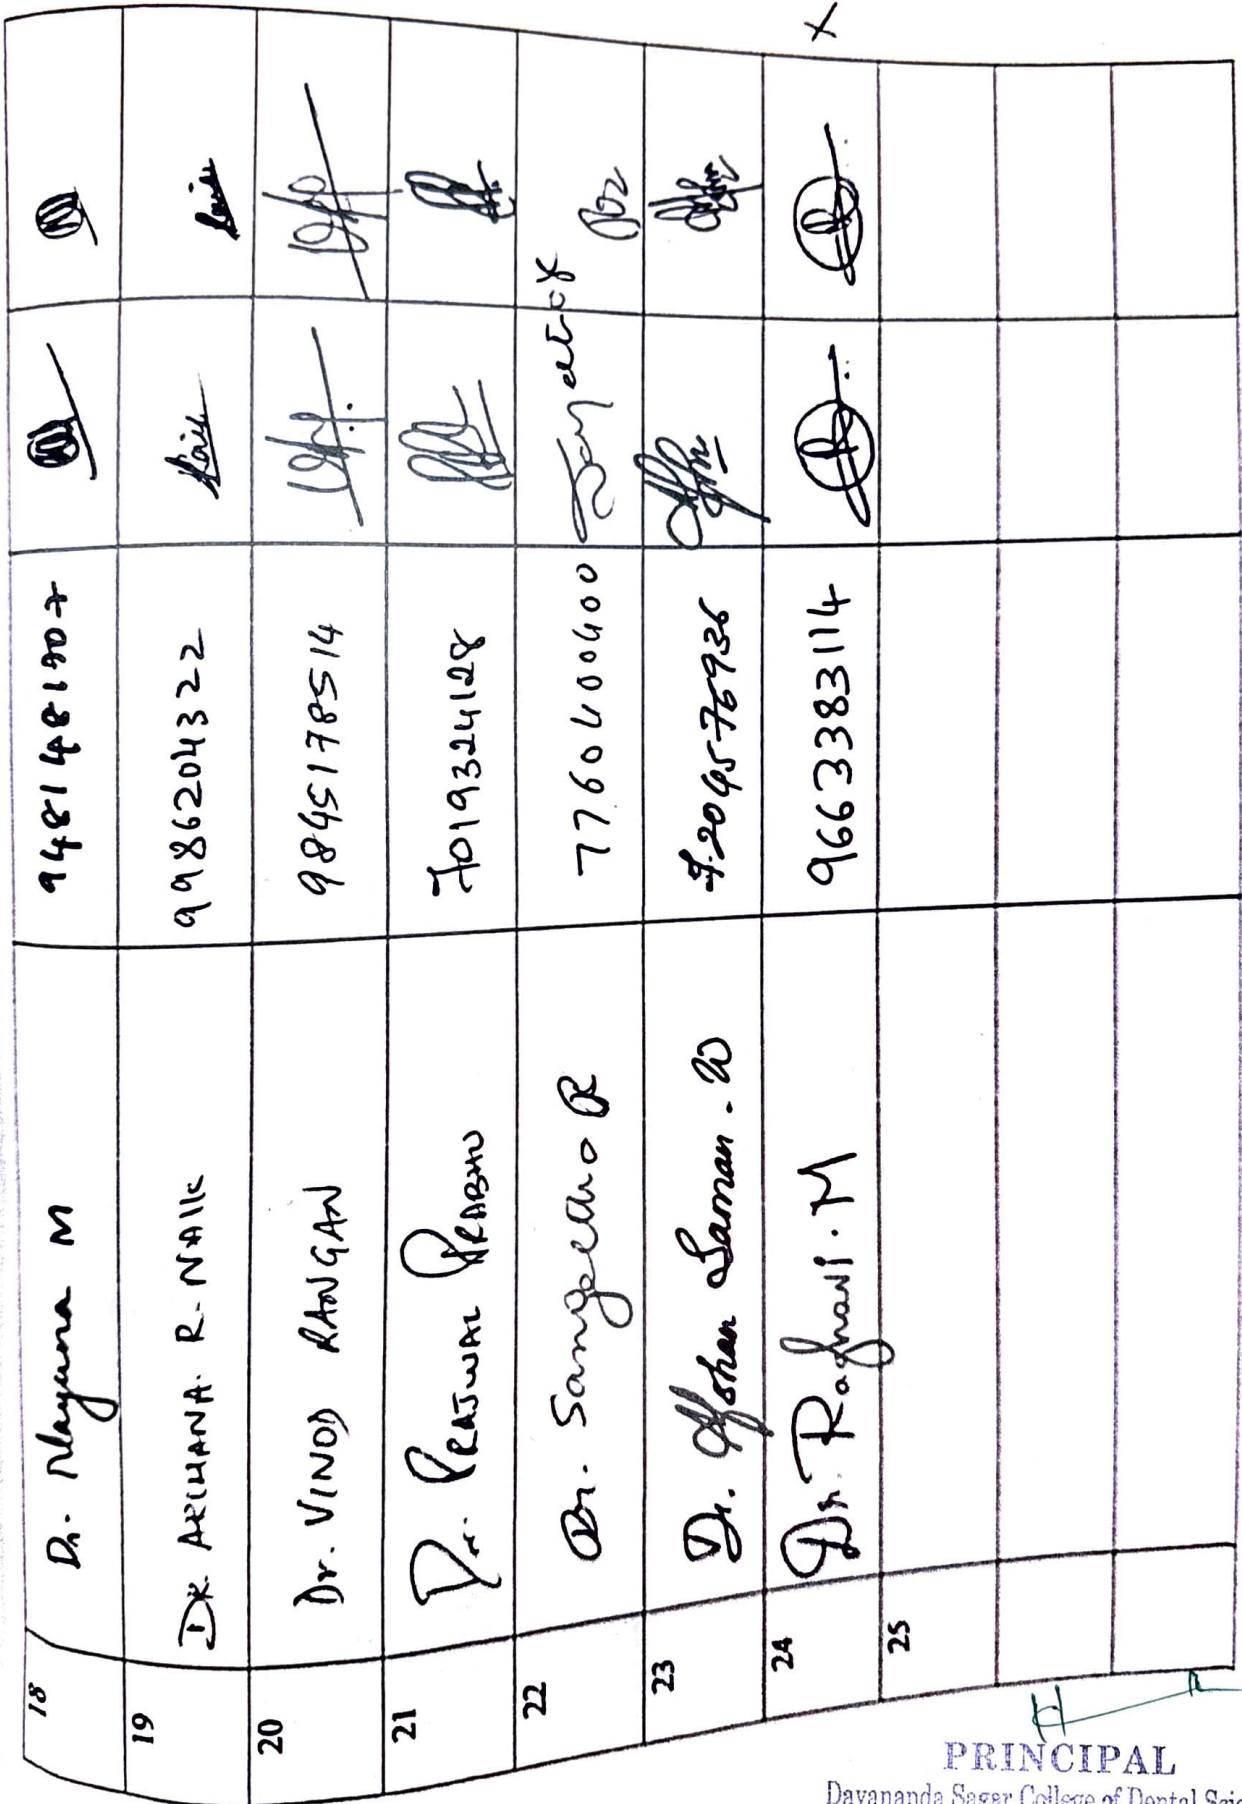 18 Dr. Nayana M 9481481907
19 DR. ARCHANA. R. NAIK 9986204322
20 Dr. VINOD RANGAN 9845178514
21 Dr. PRAJWAL PRABHU 7019324128
22 Dr. Sangeetha R 7760400400
23 Dr. Afshan Saman. W 7204576936
24 Dr. Raghavi. M 9663383114
25
X
PRINCIPAL
Dayananda Sagar College of Dental Scie